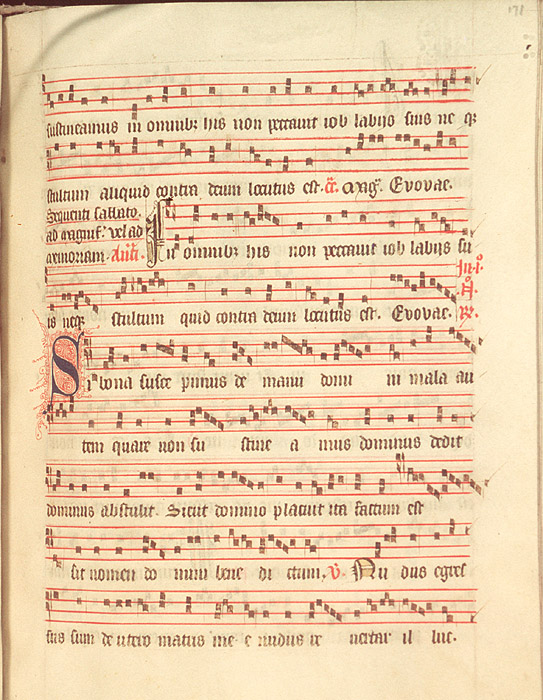 171
sustineamus in omnibz his non peccauit iob labijs suis ne qz
stultum aliquid contra deum locutus est. Evovae.
Sequenti sabbato
ad magnif. vel ad
memoriam. Ant.
In omnibz his non peccauit iob labijs su
is neqz stultum quid contra deum locutus est. Evovae. R.
Si bona susce pimus de manu domi in mala au
tem quare non su stine a mus dominus dedit
dominus abstulit. Sicut domino placuit ita factum est
sit nomen do mini bene di ctum. V. Nu dus egres
sus sum de utero matris me e nudus re uertar il luc.